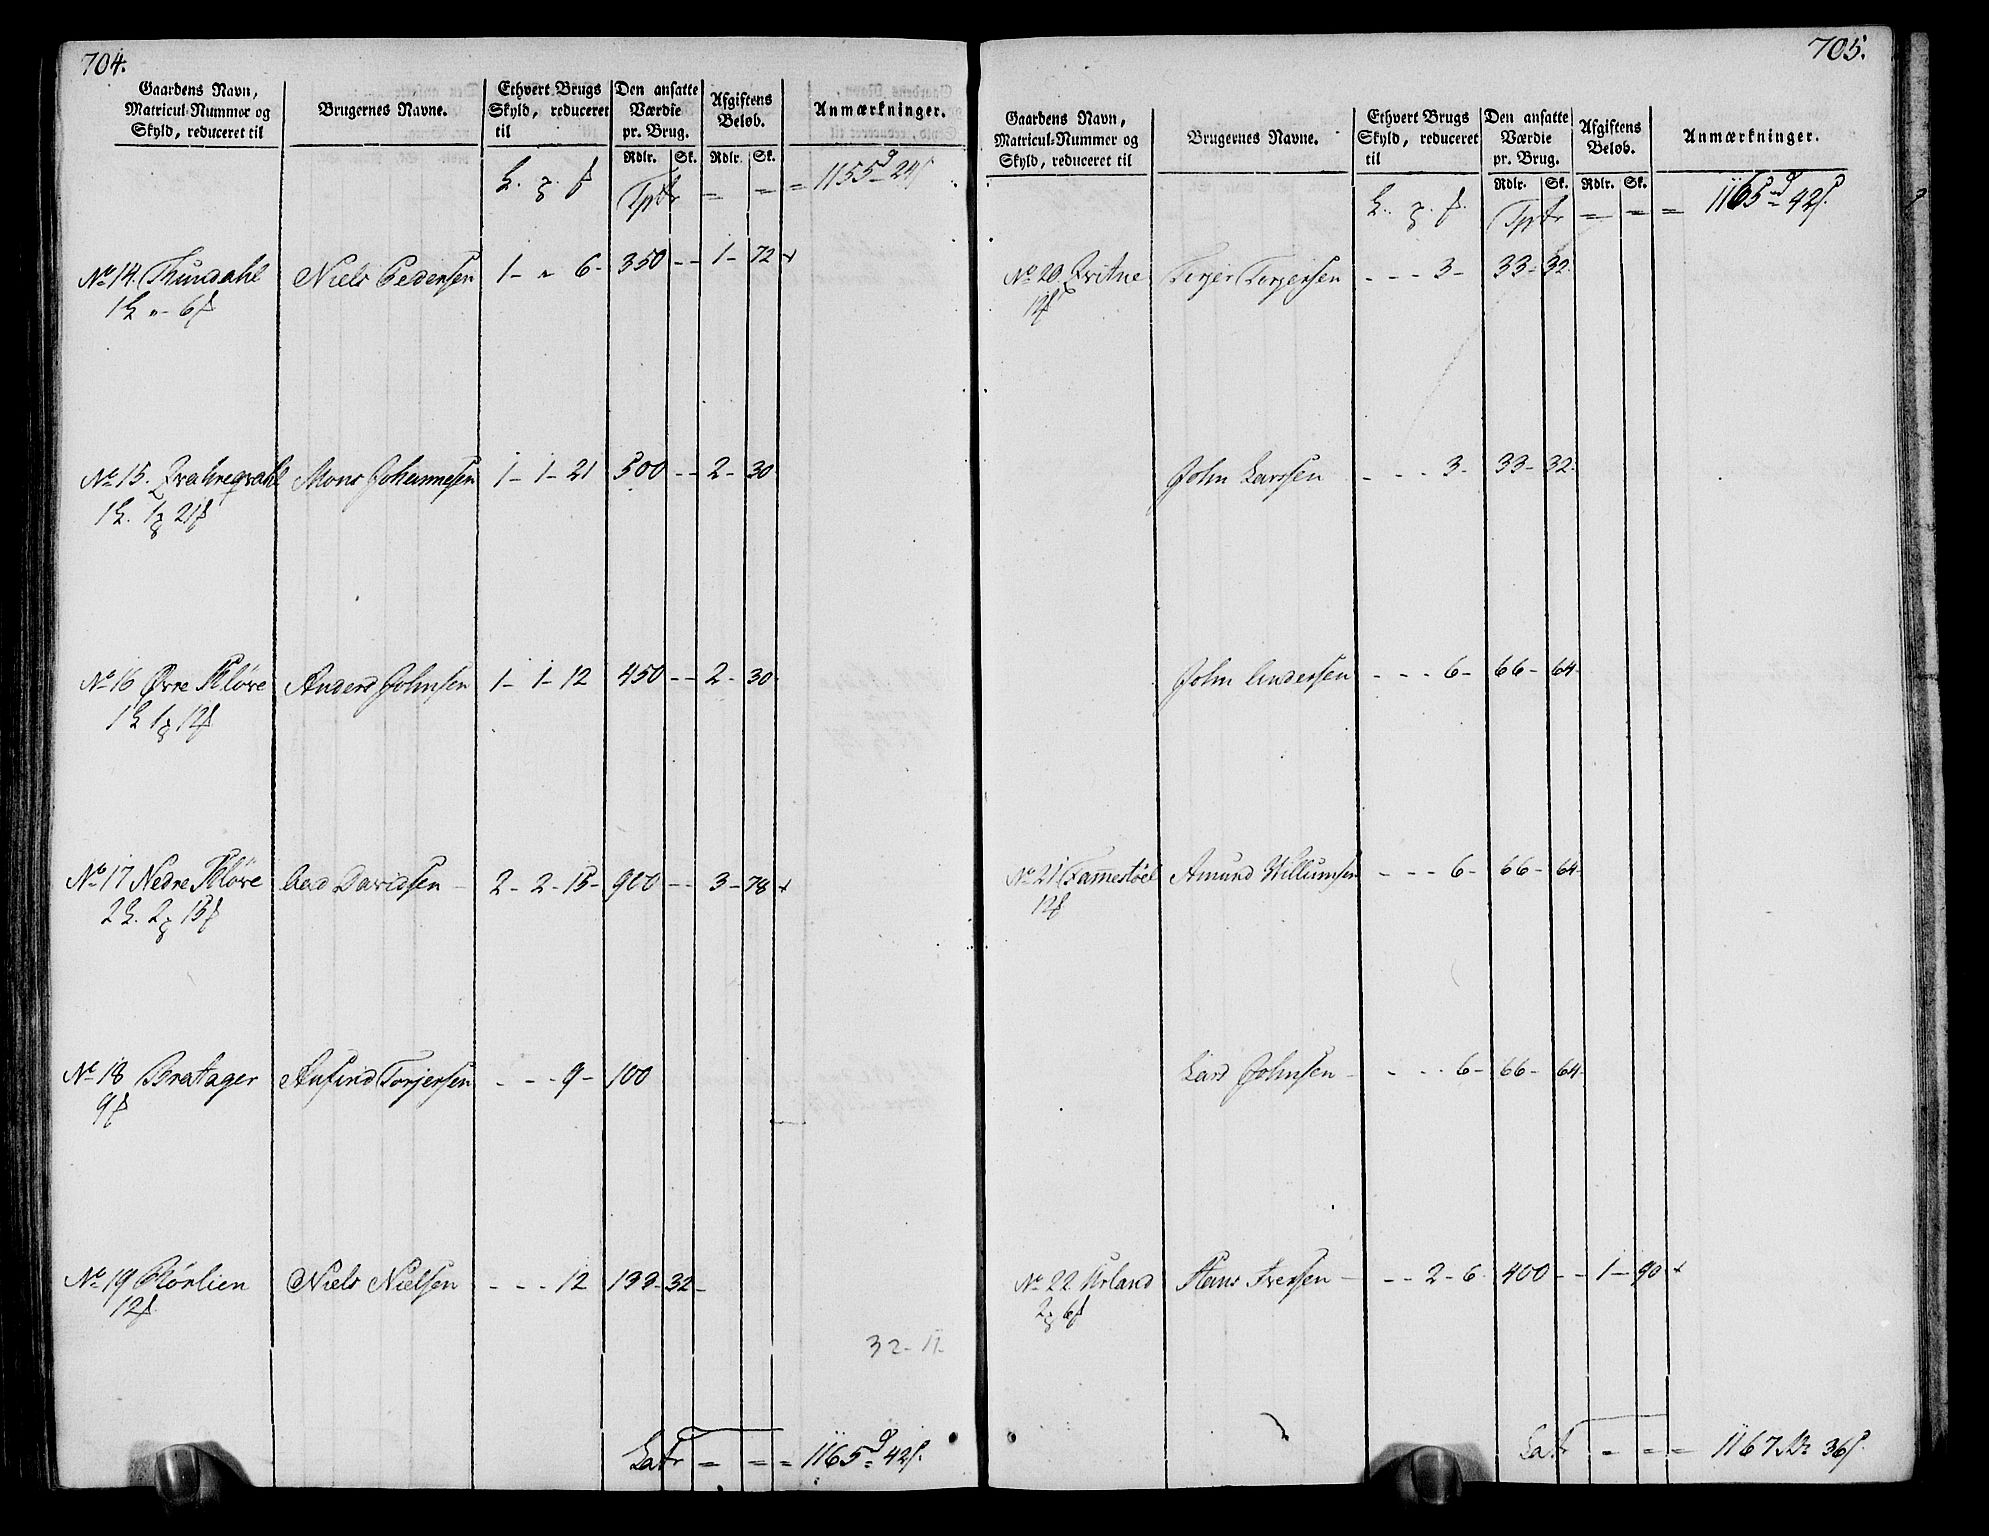 704.
Gaardens Navn,
Matricul-Nummer og
Skyld, reduceret til
Brugernes Navne.
Ethvert Brugs
Skyld, reduceret
til
Den ansatte
Værdie
pr. Brug.
Afgiftens
Beløb.
Anmærkninger.
Rdlr. Sk. Rdlr. Sk.
Tptr = = = 1155 24
No 14. Niels Pedersen 1 - " 6 - 350 - - 1 - 72 +
No 15. Mons Johannesen 1 - 1 - 21 500 - - 2 - 30
No 16 Øvre Kløve Anders Johnsen 1 - 1 - 12 450 - - 2 - 30
No 17 Nedre Kløve Davidsen - 2 - 2 - 15 - 900 - - 3 - 78 +
No 18 Bratager Anfind Torjersen - - - 9 - 100
No 19 Rørlien Niels Nielsen - - - 12 133 - 32 -
32 - 11
Latr = = = 1165 42
705.
Gaardens Navn,
Matricul-Nummer og
Skyld, reduceret til
Brugernes Navne.
Ethvert Brugs
Skyld, reduceret
til
Den ansatte
Værdie
pr. Brug.
Afgiftens
Beløb.
Anmærkninger.
Rdlr. Sk. Rdlr. Sk.
Tptr = = = 1165 42
No 20 Qvitne Torjer Torjersen - - - 3 - 33 - 32
John Larssen - - - 3 - 33 - 32
John Andersen - - - 6 - 66 - 64
No 21 Tamestøel Amund Willumsen - - - 6 - 66 - 64
Lars Johnsen - - - - 6 - 66 - 64
No 22 Urland Hans Iversen - - - 2 - 6 400 - - 1 - 90 +
Latr = = = 1167 36